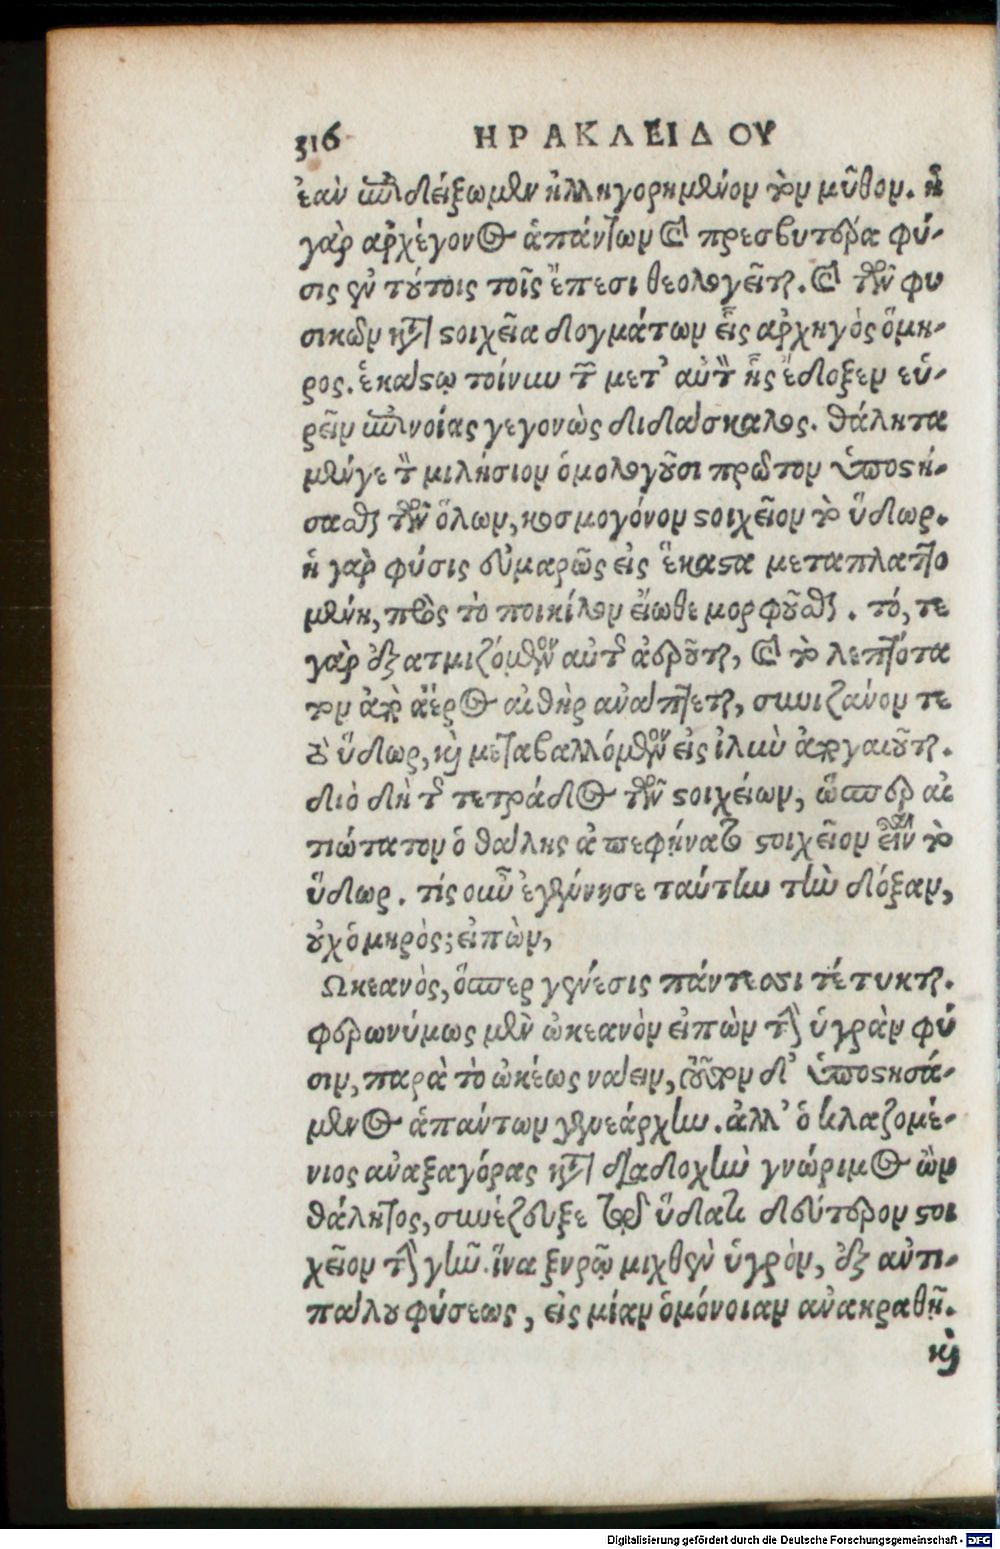 316 ΗΡΑΚΛΕΙΔΟΥ
ἐὰν ἐπιδείξωμεν ἠλληγορημένον τὸν μῦθον. ἡ
γὰρ ἀρχέγονος ἁπάντων καὶ πρεσβυτέρα φύ-
σις ἐν τούτοις τοῖς ἔπεσι θεολογεῖται. καὶ τῶν φυ
σικῶν κατὰ στοιχεῖα δογμάτων εἷς ἀρχηγὸς ὅμη-
ρος. ἑκάστῳ τοίνυν τῶν μετ' αὐτὸν ἧς ἔδοξεν εὑ-
ρεῖν ἐπινοίας γεγονὼς διδάσκαλος. θάλητα
μένγε τὸν μιλήσιον ὁμολογοῦσι πρῶτον ὑποστή-
σασθαι τῶν ὅλων, κοσμογόνον στοιχεῖον τὸ ὕδωρ.
ἡ γὰρ φύσις εὐμαρῶς εἰς ἕκαστα μεταπλαττο
μένη, πρὸς τὸ ποικίλον εἴωθε μορφοῦσθαι. τό, τε
γὰρ ἐξατμιζόμενον αὐτῆς ἀεροῦται, καὶ τὸ λεπτότα
τον ἀπὸ ἀέρος αἰθὴρ ἀνάπτεται, συνιζάνον τε
τὸ ὕδωρ, καὶ μεταβαλλόμενον εἰς ἰλὺν ἀπογαιοῦται.
διὸ δὴ τῆς τετράδος τῶν στοιχείων, ὥσπερ αἰ
τιώτατον ὁ θάλης ἀπεφήνατο στοιχεῖον εἶναι τὸ
ὕδωρ. τίς οὖν ἐγέννησε ταύτην τὴν δόξαν,
οὐχ ὁμηρὸς; εἰπὼν,
Ωκεανὸς, ὅσπερ γένεσις πάντεσσι τέτυκται.
φερωνύμως μὲν ὠκεανὸν εἰπὼν τὴν ὑγρὰν φύ
σιν, παρὰ τὸ ὠκέως νάειν, τοῦτον δ' ὑποστησά-
μενος ἁπάντων γενεάρχην. ἀλλ' ὁ κλαζομέ-
νιος ἀναξαγόρας κατὰ διαδοχὴν γνώριμος ὢν
θάλητος, συνέζευξε τῷ ὕδατι δεύτερον στοι
χεῖον τὴν γῆν. ἵνα ξηρῷ μιχθὲν ὑγρὸν, ἐξ ἀντι-
πάλου φύσεως, εἰς μίαν ὁμόνοιαν ἀνακραθῇ.
καὶ
Digitalisierung gefördert durch die Deutsche Forschungsgemeinschaft - DFG